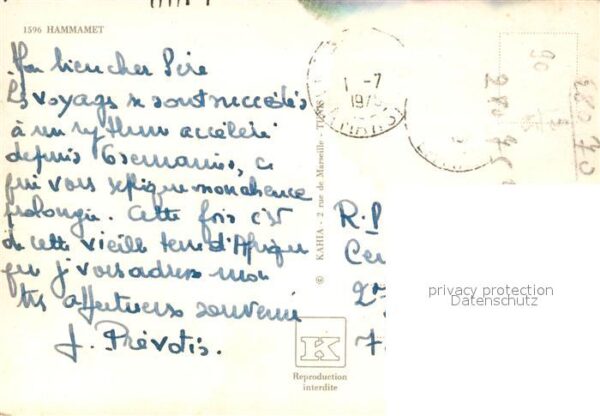 1596 HAMMAMET
Mon bien cher Père
Les voyages se sont succédés
à un rythme accéléré
depuis 6 semaines, ce
qui vous explique mon absence
prolongée. Cette fois c'est
de cette vieille terre d'Afrique
que j'vous adresse mon
très affectueux souvenir
J. Prévotis.
© KAHIA - 2 rue de Marseille - TUNIS
1 -7
197
R.P
Ce
2
7
K
Reproduction
interdite
90
280 70
privacy protection
Datenschutz